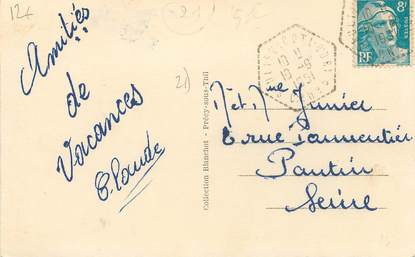 12f
Amitiés
de
Vacances
Claude
21)
Collection Blanchot - Précy-sous-Thil
10 H
10-9
1951
8F
RF
M et Mme Junier
rue Parmentier
Pantin
Seine